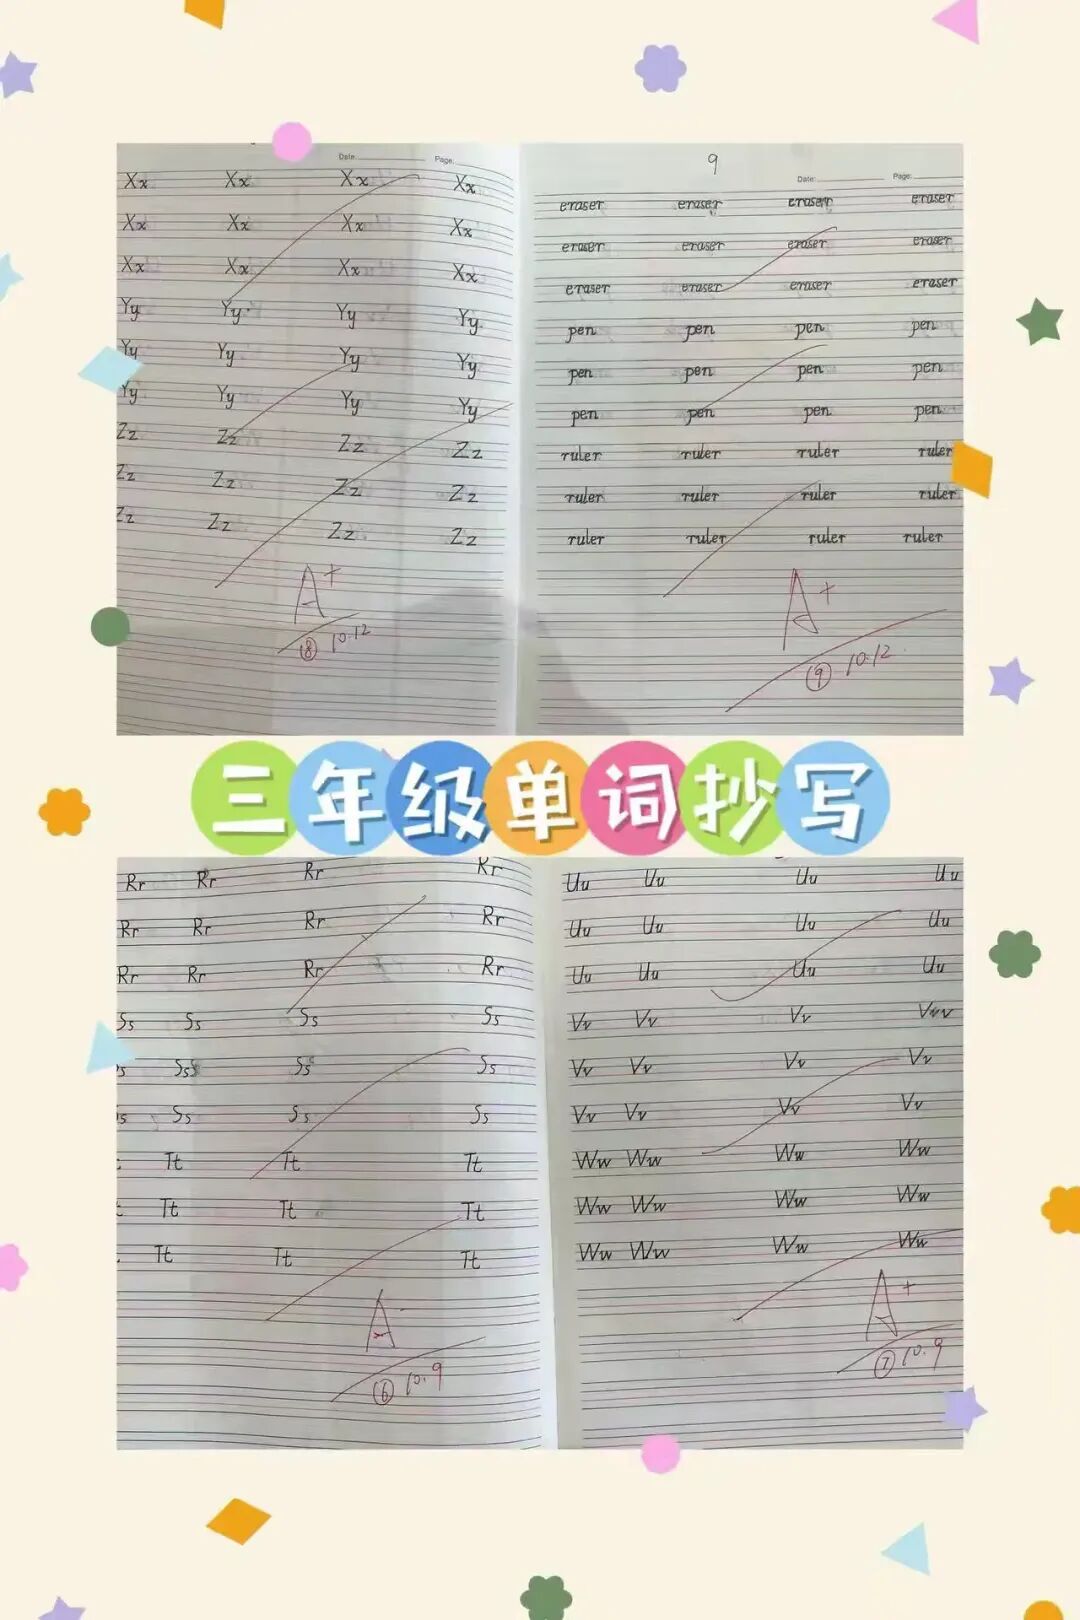 Date: Page:
Xx Xx Xx Xx
Xx Xx Xx Xx
Xx Xx Xx Xx
Yy Yy Yy Yy
Yy Yy Yy Yy
Yy Yy Yy Yy
Zz Zz Zz Zz
Zz Zz Zz Zz
Zz Zz Zz Zz
A+
⑧ 10.12
9
Date: Page:
eraser eraser eraser eraser
eraser eraser eraser eraser
eraser eraser eraser eraser
pen pen pen pen
pen pen pen pen
pen pen pen pen
ruler ruler ruler ruler
ruler ruler ruler ruler
ruler ruler ruler ruler
A+
⑨ 10.12
三年级单词抄写
Rr Rr Rr Rr
Rr Rr Rr Rr
Rr Rr Rr Rr
Ss Ss Ss Ss
s Ss Ss Ss
s Ss Ss Ss
Tt Tt Tt
Tt Tt Tt
Tt Tt Tt
A
⑥ 10.9
Uu Uu Uu Uu
Uu Uu Uu Uu
Uu Uu Uu Uu
Vv Vv Vv Vvv
Vv Vv Vv Vv
Vv Vv Vv Vv
Ww Ww Ww Ww
Ww Ww Ww Ww
Ww Ww Ww Ww
A+
⑦ 10.9